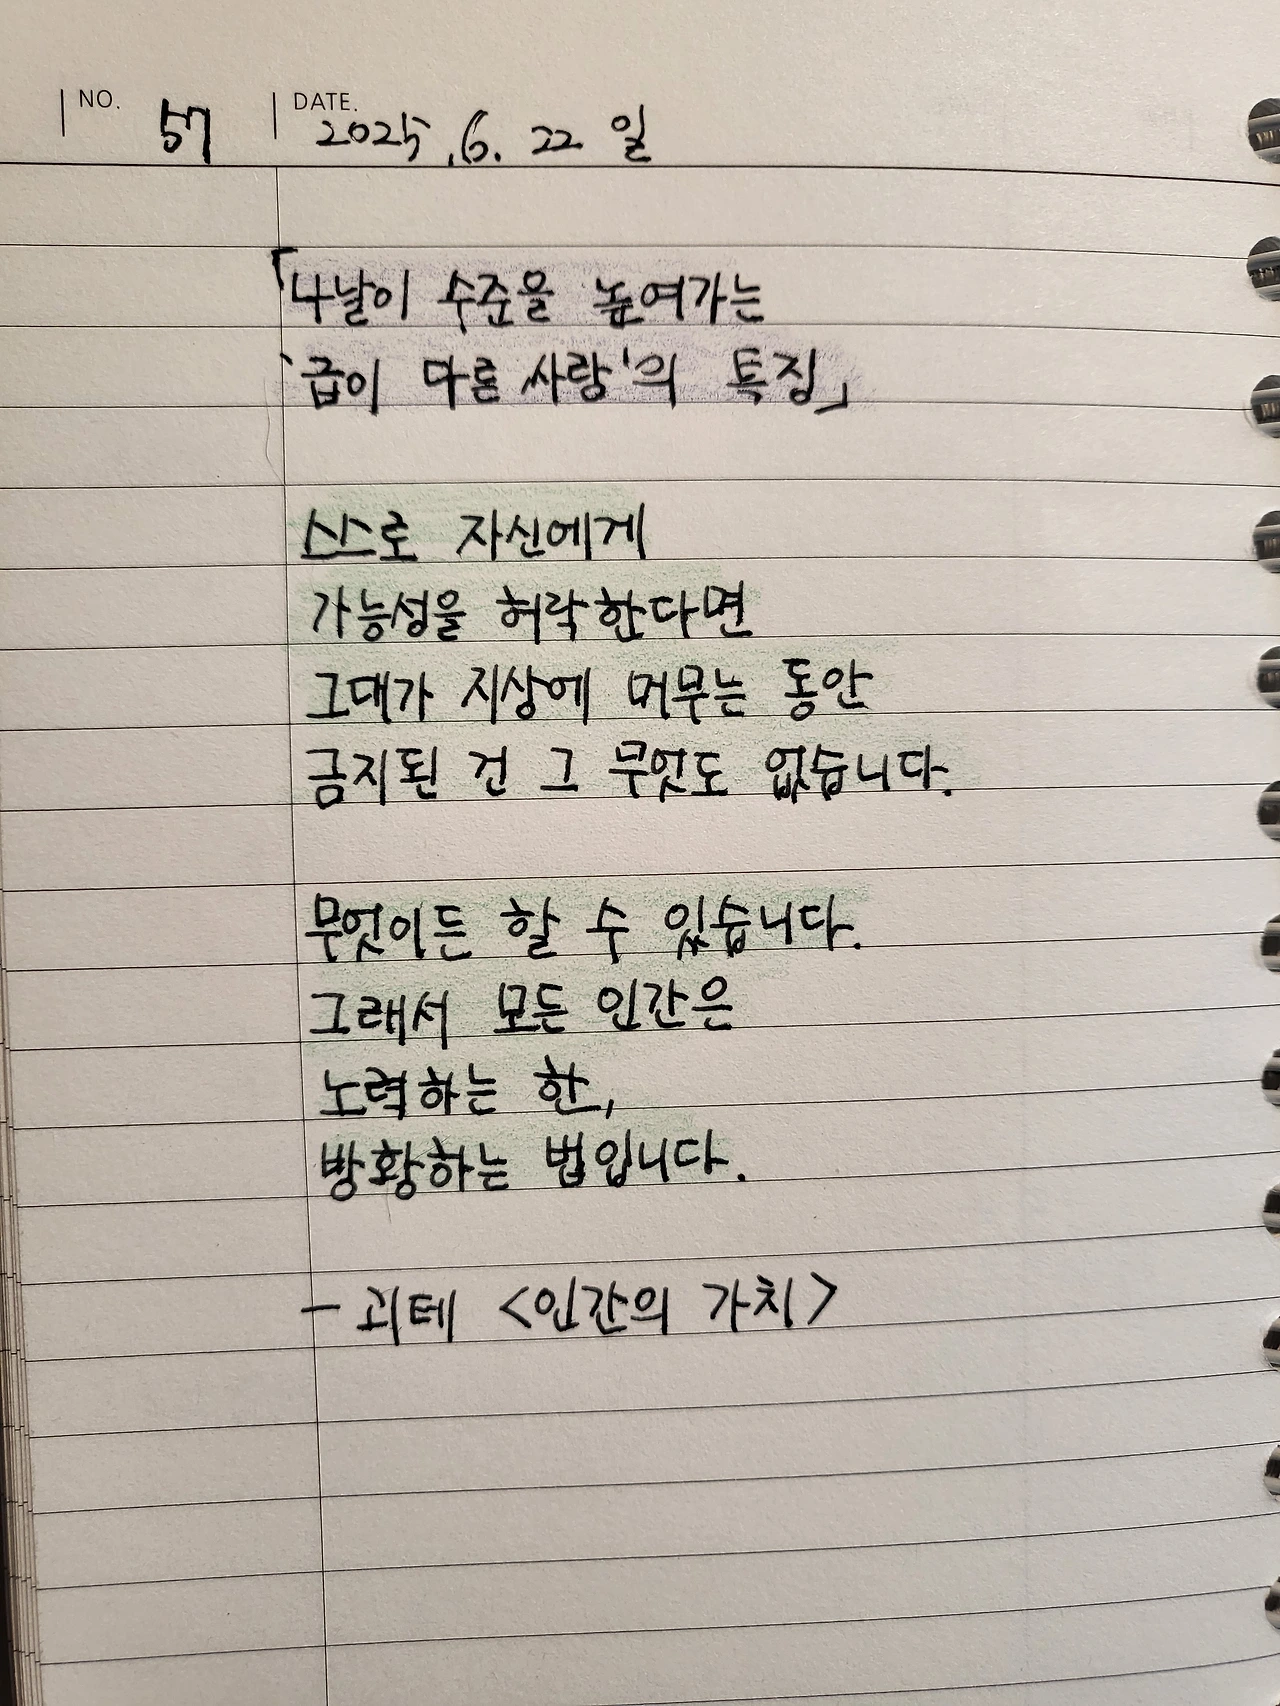 NO. 57 DATE. 2025. 6. 22 일
「나날이 수준을 높여가는
'급이 다른 사람'의 특징」
스스로 자신에게
가능성을 허락한다면
그대가 지상에 머무는 동안
금지된 건 그 무엇도 없습니다.
무엇이든 할 수 있습니다.
그래서 모든 인간은
노력하는 한,
방황하는 법입니다.
- 괴테 <인간의 가치>